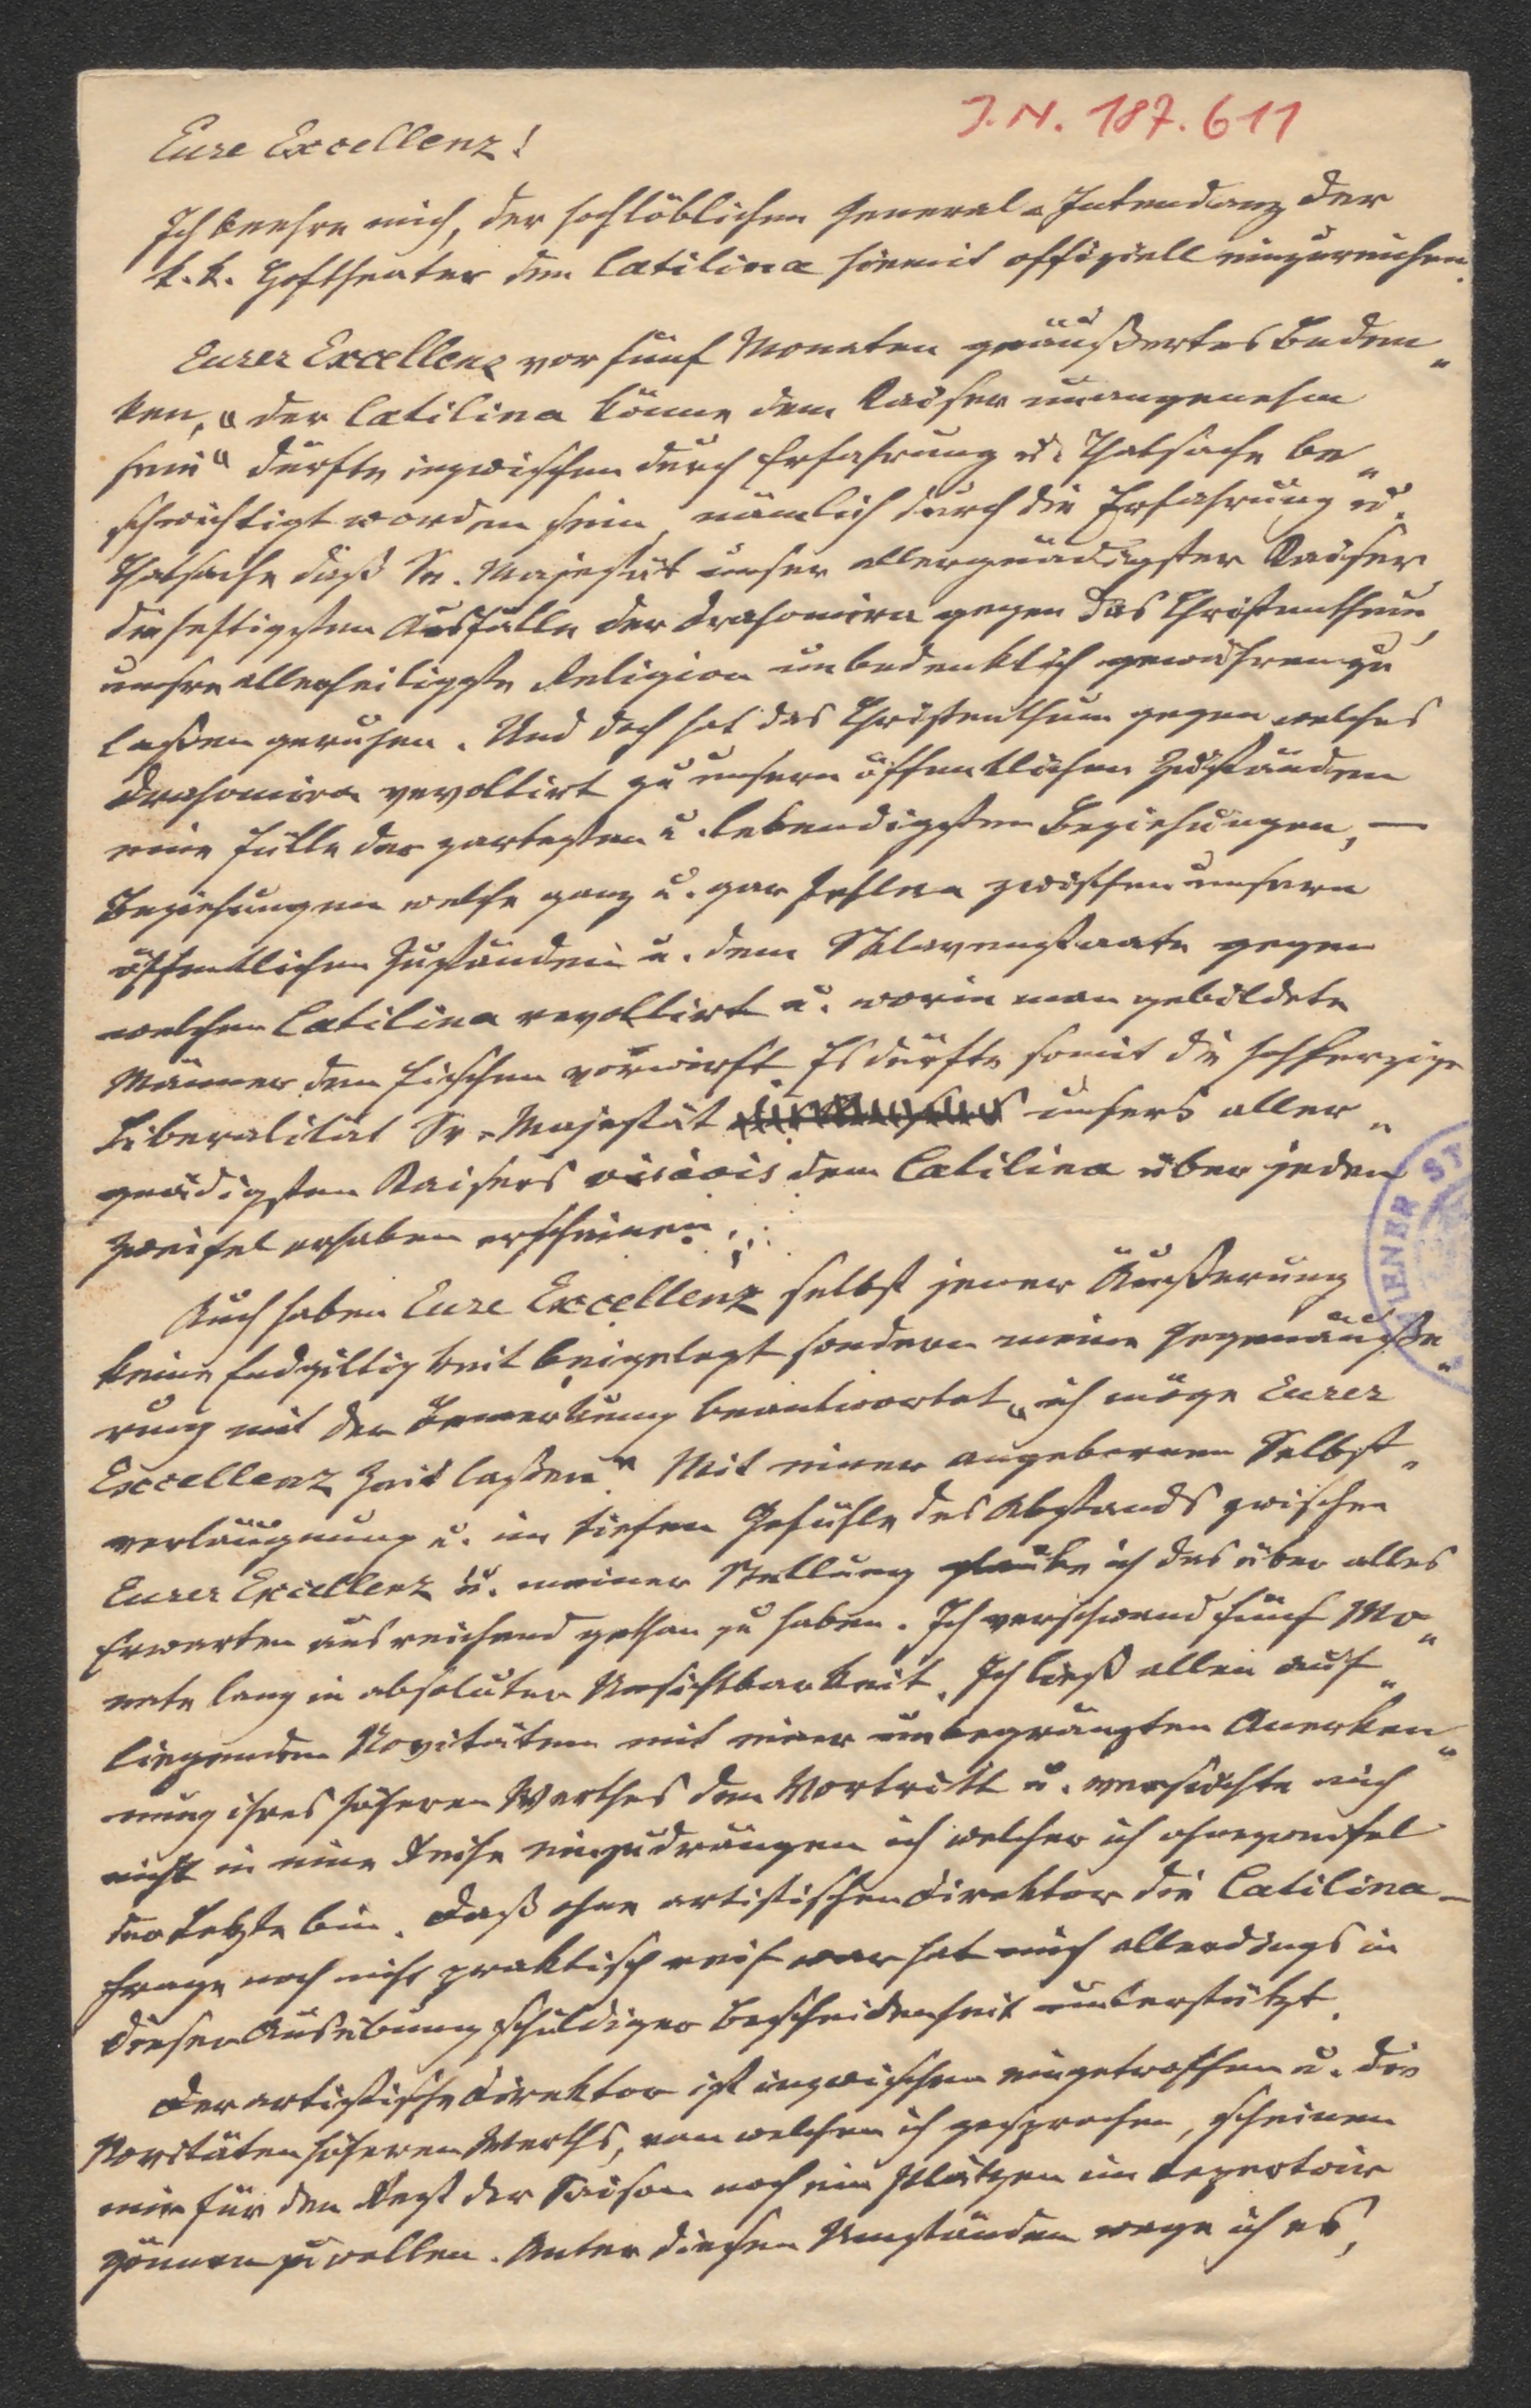 J. N. 187.611
Eure Excellenz!
Ich beehre mich, der hochlöblichen General-Intendanz der
k. k. Hoftheater den Catilina hiemit offiziell einzureichen.
Eurer Excellenz vor fünf Monaten geäußertes Beden„
ken, „der Catilina könne dem Kaiser unangenehm
sein“ dürfte inzwischen durch Erfahrung u. Thatsache be„
schwichtigt worden sein, nämlich durch die Erfahrung u.
Thatsache daß Se. Majestät unser allergnädigster Kaiser
die heftigsten Ausfälle der Drahomira gegen das Christenthum,
unsre allerheiligste Religion unbedenklich gewähren zu
laßen geruhen. Und doch hat das Christenthum gegen welches
Drahomira revoltirt zu unsern öffentlichen Zuständen
eine Fülle der zartesten u. lebendigsten Beziehungen, —
Beziehungen welche ganz u. gar fehlen zwischen unsern
öffentlichen Zuständen u. dem Sklavenstaate gegen
welchen Catilina revoltirt u. worin man gebildete
Männer den Fischen vorwirft. Es dürfte somit die hochherzige
Liberalität Sr. Majestät unsers aller„
gnädigsten Kaisers visàvis dem Catilina über jeden
Zweifel erhaben erscheinen.
Auch haben Eure Excellenz selbst jener Äußerung
keine Endgiltigkeit beigelegt sondern meine Gegenäuße„
rung mit der Bemerkung beantwortet „ich möge Eurer
Excellenz Zeit laßen“. Mit einer angebornen Selbst„
verläugnung u. im tiefen Gefühle des Abstands zwischen
Eurer Excellenz u. meiner Stellung glaube ich das über alles
Erwarten ausreichend gethan zu haben. Ich verschwand fünf Mo„
nate lang in absoluter Unsichtbarkeit. Ich ließ allen auf„
liegenden Novitäten mit einer unbegränzten Anerken„
nung ihres höheren Werthes den Vortritt u. versuchte mich
nicht in eine Reihe einzudrängen in welcher ich ohnezweifel
der Letzte bin. Daß ohne artistischen Direktor die Catilina-
frage noch nicht praktisch reif war hat mich allerdings in
dieser Ausübung schuldiger Bescheidenheit unterstützt.
Der artistische Direktor ist inzwischen eingetroffen u. die
Novitäten höheren Werths, von welchen ich gesprochen, scheinen
mir für den Rest der Saison noch ein Plätzchen im Repertoir
gönnen zu wollen. Unter diesen Umständen wage ich es,
IENER ST